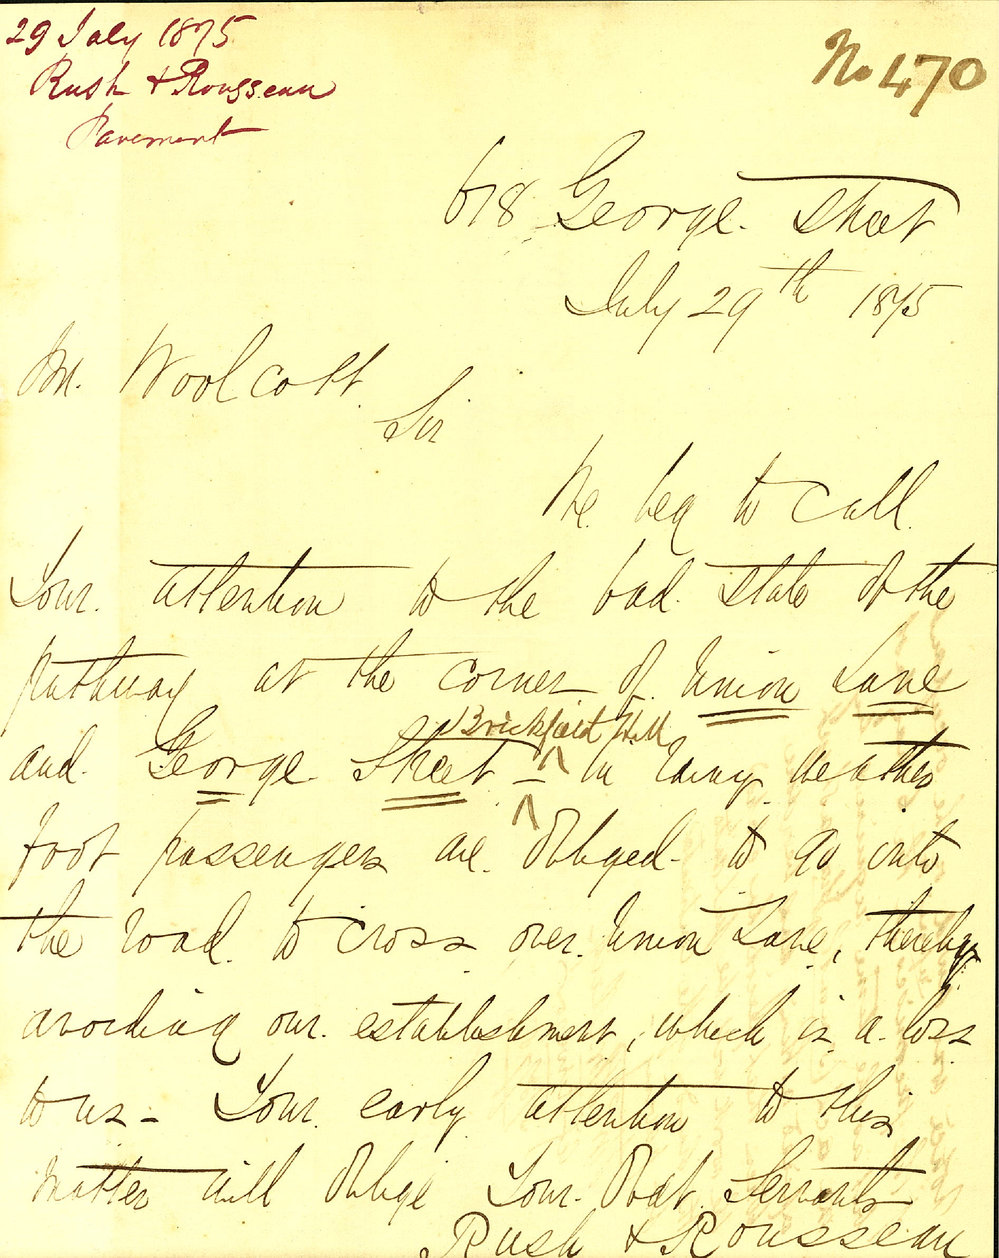 29 July 1875
Rush & Rousseau
Pavement
No 470
678 George Street
July 29th 1875
Mr. Woolcott.
Sir
We beg to call
Your attention to the bad state of the
pathway at the corner of Union Lane
Brickfield Hill
and George Street - In rainy weather
foot passengers are obliged to go into
the road to cross over Union Lane, thereby
avoiding our establishment, which is a loss
to us - Your early attention to this
matter will oblige Your Obdt Servants
Rush & Rousseau